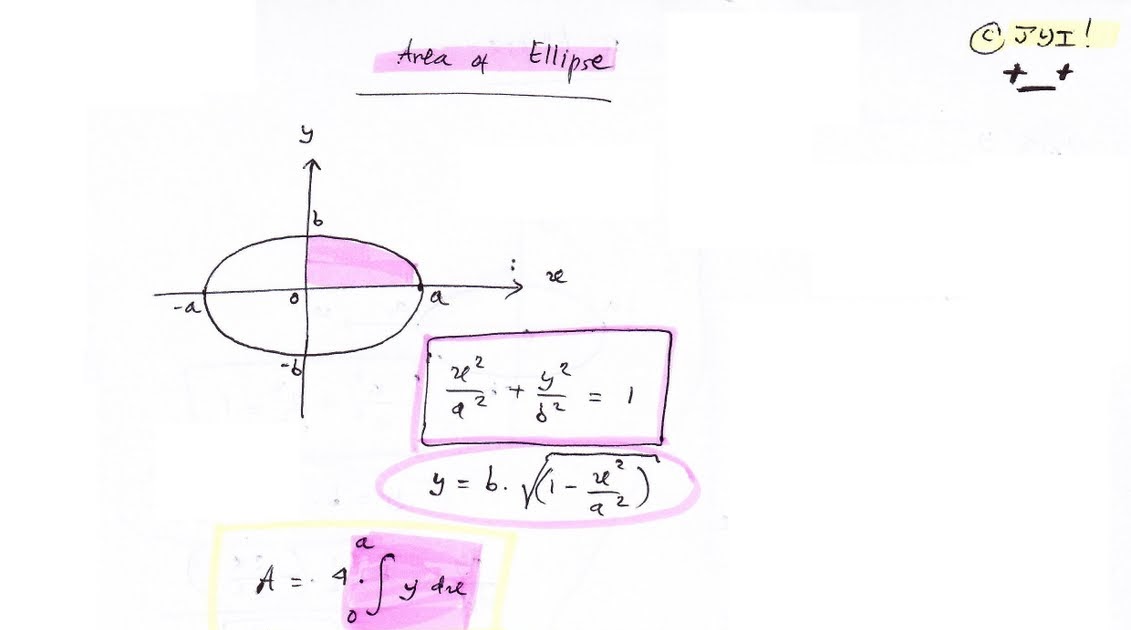 Area of Ellipse
© JYI!
y
b
x
-a
o
a
-b
x²/a² + y²/b² = 1
y = b. √(1 - x²/a²)
A = 4. ∫₀ᵃ y dx